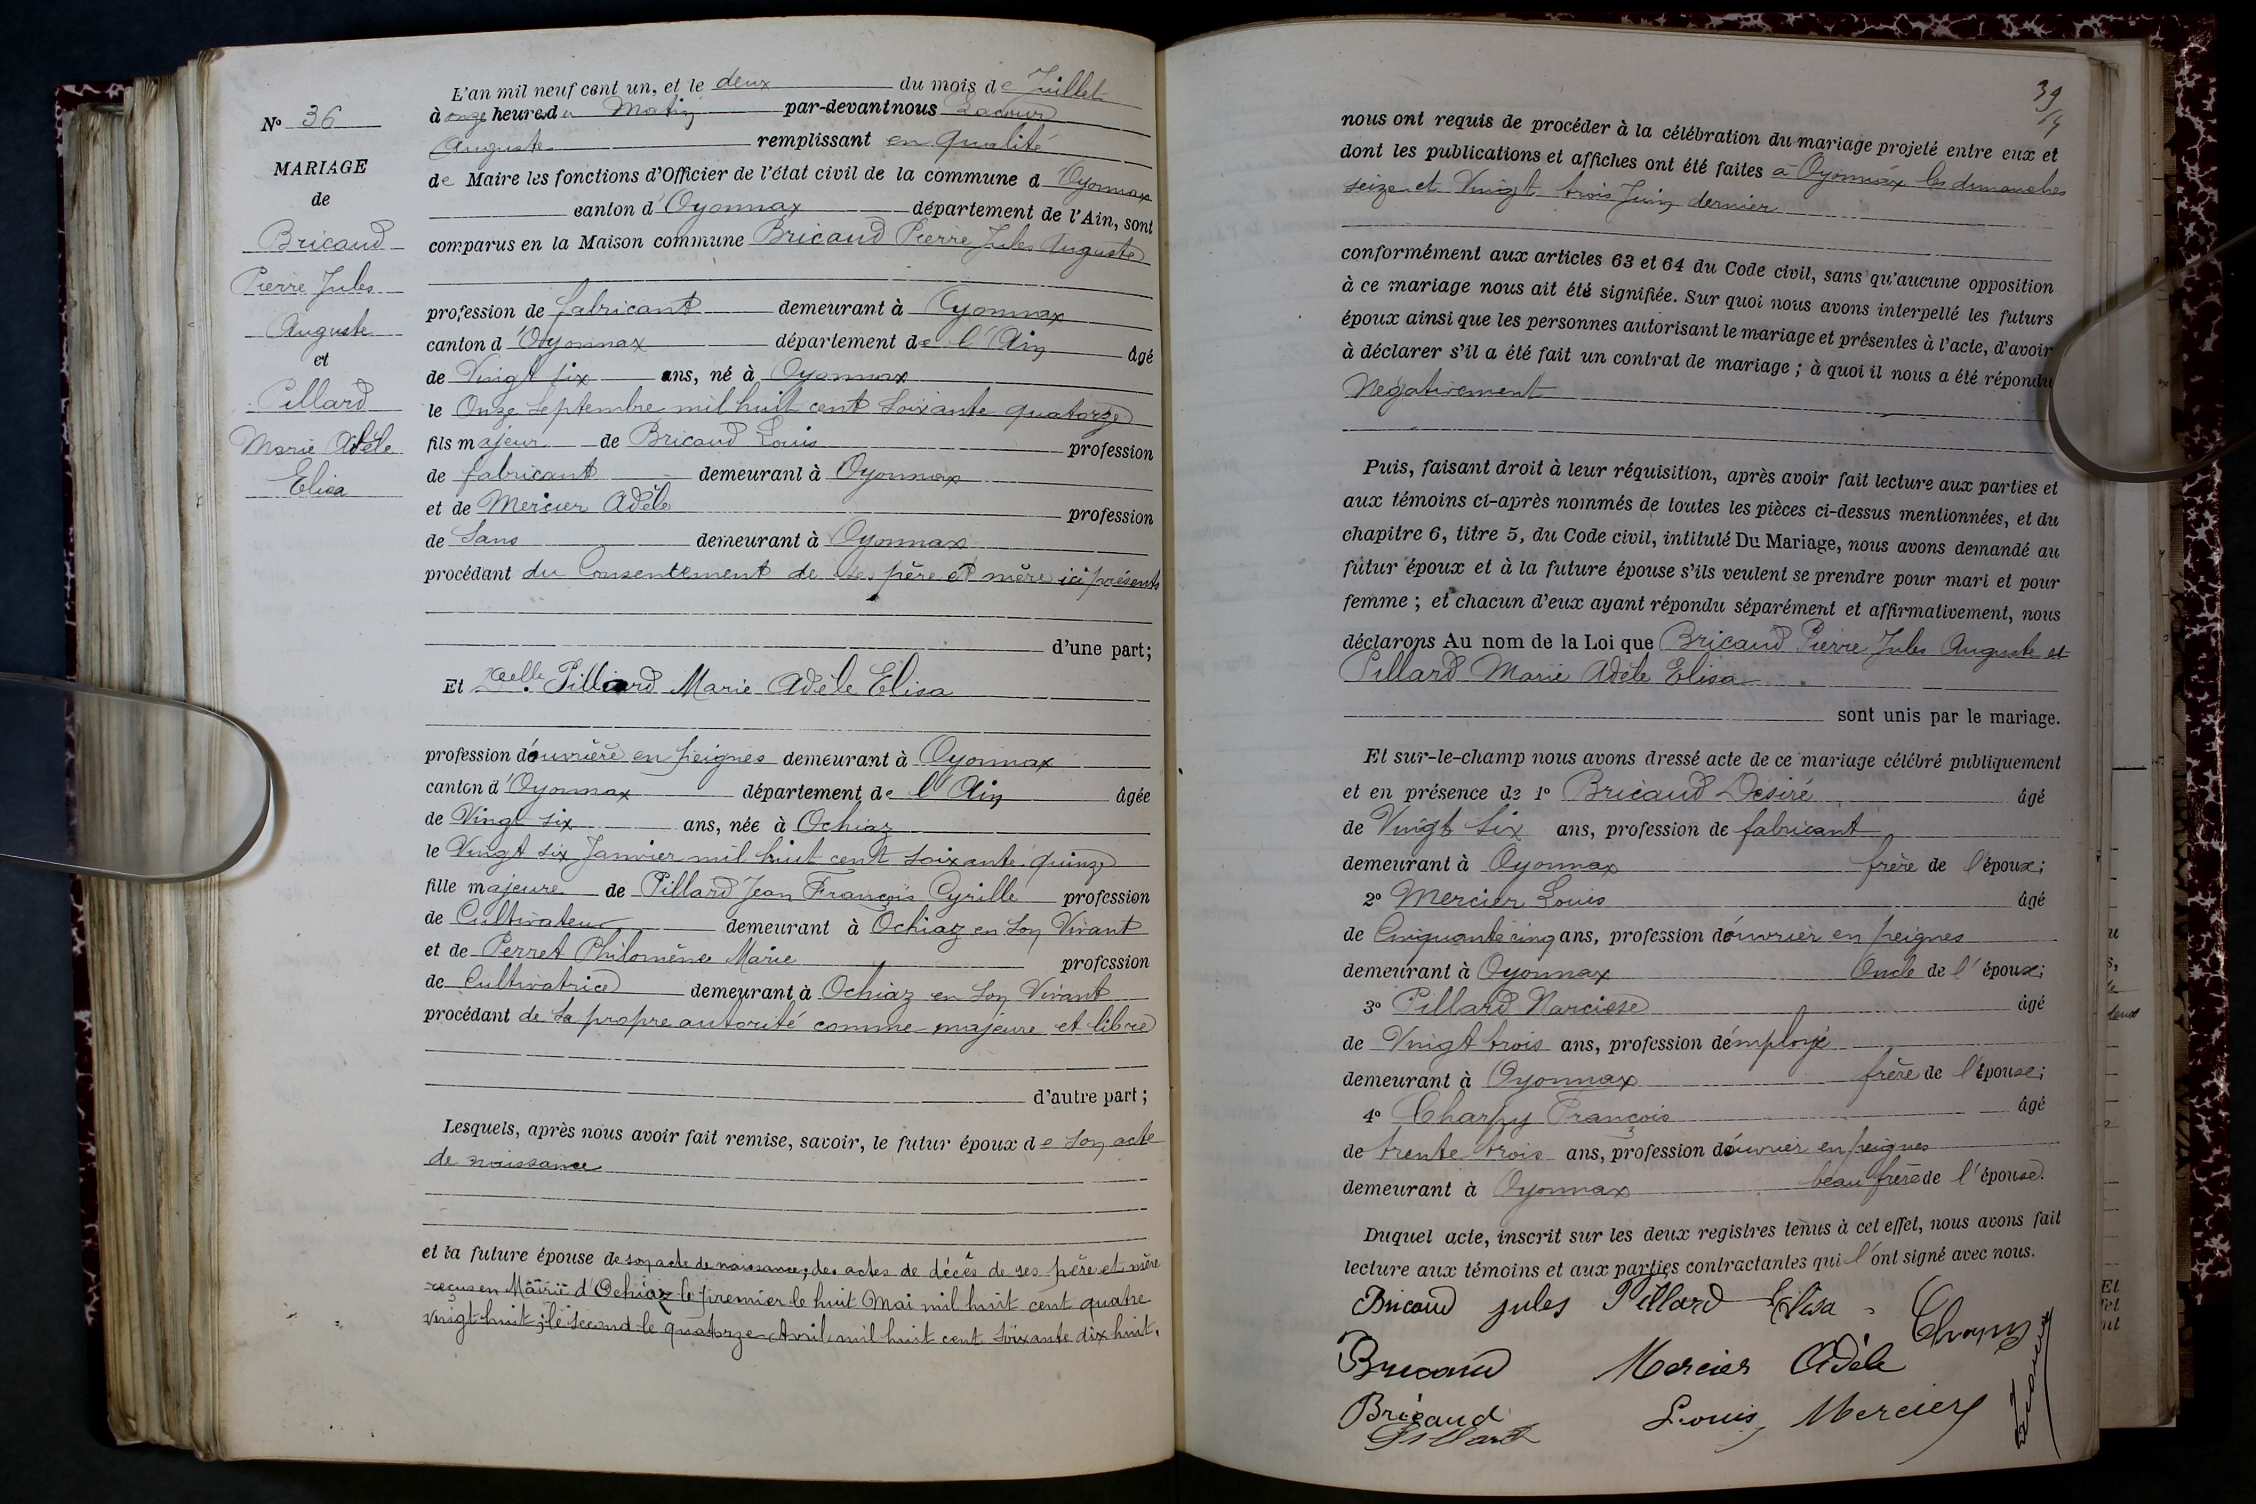 N° 36
MARIAGE
de
Bricaud
Pierre Jules
Auguste
et
Pillard
Marie Adèle
Elisa
L'an mil neuf cent un, et le deux du mois de Juillet
à onze heures du Matin par-devant nous Lacour
Auguste remplissant en qualité
de Maire les fonctions d'Officier de l'état civil de la commune d Oyonnax
canton d'Oyonnax département de l'Ain, sont
comparus en la Maison commune Bricaud Pierre Jules Auguste
profession de fabricant demeurant à Oyonnax
canton d'Oyonnax département de l'Ain âgé
de Vingt six ans, né à Oyonnax
le Onze Septembre mil huit cent soixante quatorze
fils majeur de Bricaud Louis profession
de fabricant demeurant à Oyonnax
et de Mercier Adèle profession
de Sans demeurant à Oyonnax
procédant du Consentement de ses père et mère ici présents
d'une part;
Et Delle. Pillard Marie Adèle Elisa
profession d'ouvrière en peignes demeurant à Oyonnax
canton d'Oyonnax département de l'Ain âgée
de Vingt six ans, née à Ochiaz
le Vingt six Janvier mil huit cent soixante quinze
fille majeure de Pillard Jean François Cyrille profession
de Cultivateur demeurant à Ochiaz en son Vivant
et de Perret Philomène Marie profession
de Cultivatrice demeurant à Ochiaz en son Vivant
procédant de sa propre autorité comme majeure et libre
d'autre part;
Lesquels, après nous avoir fait remise, savoir, le futur époux de son acte
de naissance
et la future épouse de son acte de naissance, des actes de décès de ses père et mère
reçus en Mairie d'Ochiaz le premier le huit Mai mil huit cent quatre
vingt huit; le second le quatorze Avril mil huit cent soixante dix huit.
39
nous ont requis de procéder à la célébration du mariage projeté entre eux et
dont les publications et affiches ont été faites à Oyonnax les dimanches
seize et Vingt trois Juin dernier
conformément aux articles 63 et 64 du Code civil, sans qu'aucune opposition
à ce mariage nous ait été signifiée. Sur quoi nous avons interpellé les futurs
époux ainsi que les personnes autorisant le mariage et présentes à l'acte, d'avoir
à déclarer s'il a été fait un contrat de mariage; à quoi il nous a été répondu
Négativement
Puis, faisant droit à leur réquisition, après avoir fait lecture aux parties et
aux témoins ci-après nommés de toutes les pièces ci-dessus mentionnées, et du
chapitre 6, titre 5, du Code civil, intitulé Du Mariage, nous avons demandé au
futur époux et à la future épouse s'ils veulent se prendre pour mari et pour
femme; et chacun d'eux ayant répondu séparément et affirmativement, nous
déclarons Au nom de la Loi que Bricaud Pierre Jules Auguste et
Pillard Marie Adèle Elisa
sont unis par le mariage.
Et sur-le-champ nous avons dressé acte de ce mariage célébré publiquement
et en présence de 1° Bricaud Désiré âgé
de Vingt Six ans, profession de fabricant
demeurant à Oyonnax frère de l'époux;
2° Mercier Louis âgé
de Cinquante cinq ans, profession d'ouvrier en peignes
demeurant à Oyonnax Oncle de l'époux;
3° Pillard Narcisse âgé
de Vingt trois ans, profession d'employé
demeurant à Oyonnax frère de l'épouse;
4° Charpy François âgé
de trente trois ans, profession d'ouvrier en peignes
demeurant à Oyonnax beau frère de l'épouse.
Duquel acte, inscrit sur les deux registres tenus à cet effet, nous avons fait
lecture aux témoins et aux parties contractantes qui l'ont signé avec nous.
Bricaud jules Pillard Elisa
Charpy
Bricaud Mercier Adèle
Bricaud Louis Mercier
Pillard
Lacour